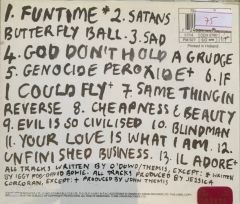 1. FUNTIME* 2. SATANS
BUTTERFLY BALL. 3. SAD
4. GOD DON'T HOLD A GRUDGE
5. GENOCIDE PEROXIDE+ 6. IF
I COULD FLY+ 7 SAME THING IN
REVERSE 8. CHEAPNESS & BEAUTY
9. EVIL IS SO CIVILISED 10. BLINDMAN
11. YOUR LOVE IS WHAT I AM. 12.
UNFINISHED BUSINESS. 13. IL ADORE+
ALL TRACKS WRITTEN BY O'DOWD/THEMIS, EXCEPT: * WRITTEN
BY IGGY POP/DAVID BOWIE. ALL TRACKS PRODUCED BY JESSICA
CORCORAN, EXCEPT + PRODUCED BY JOHN THEMIS
75
Printed in Holland